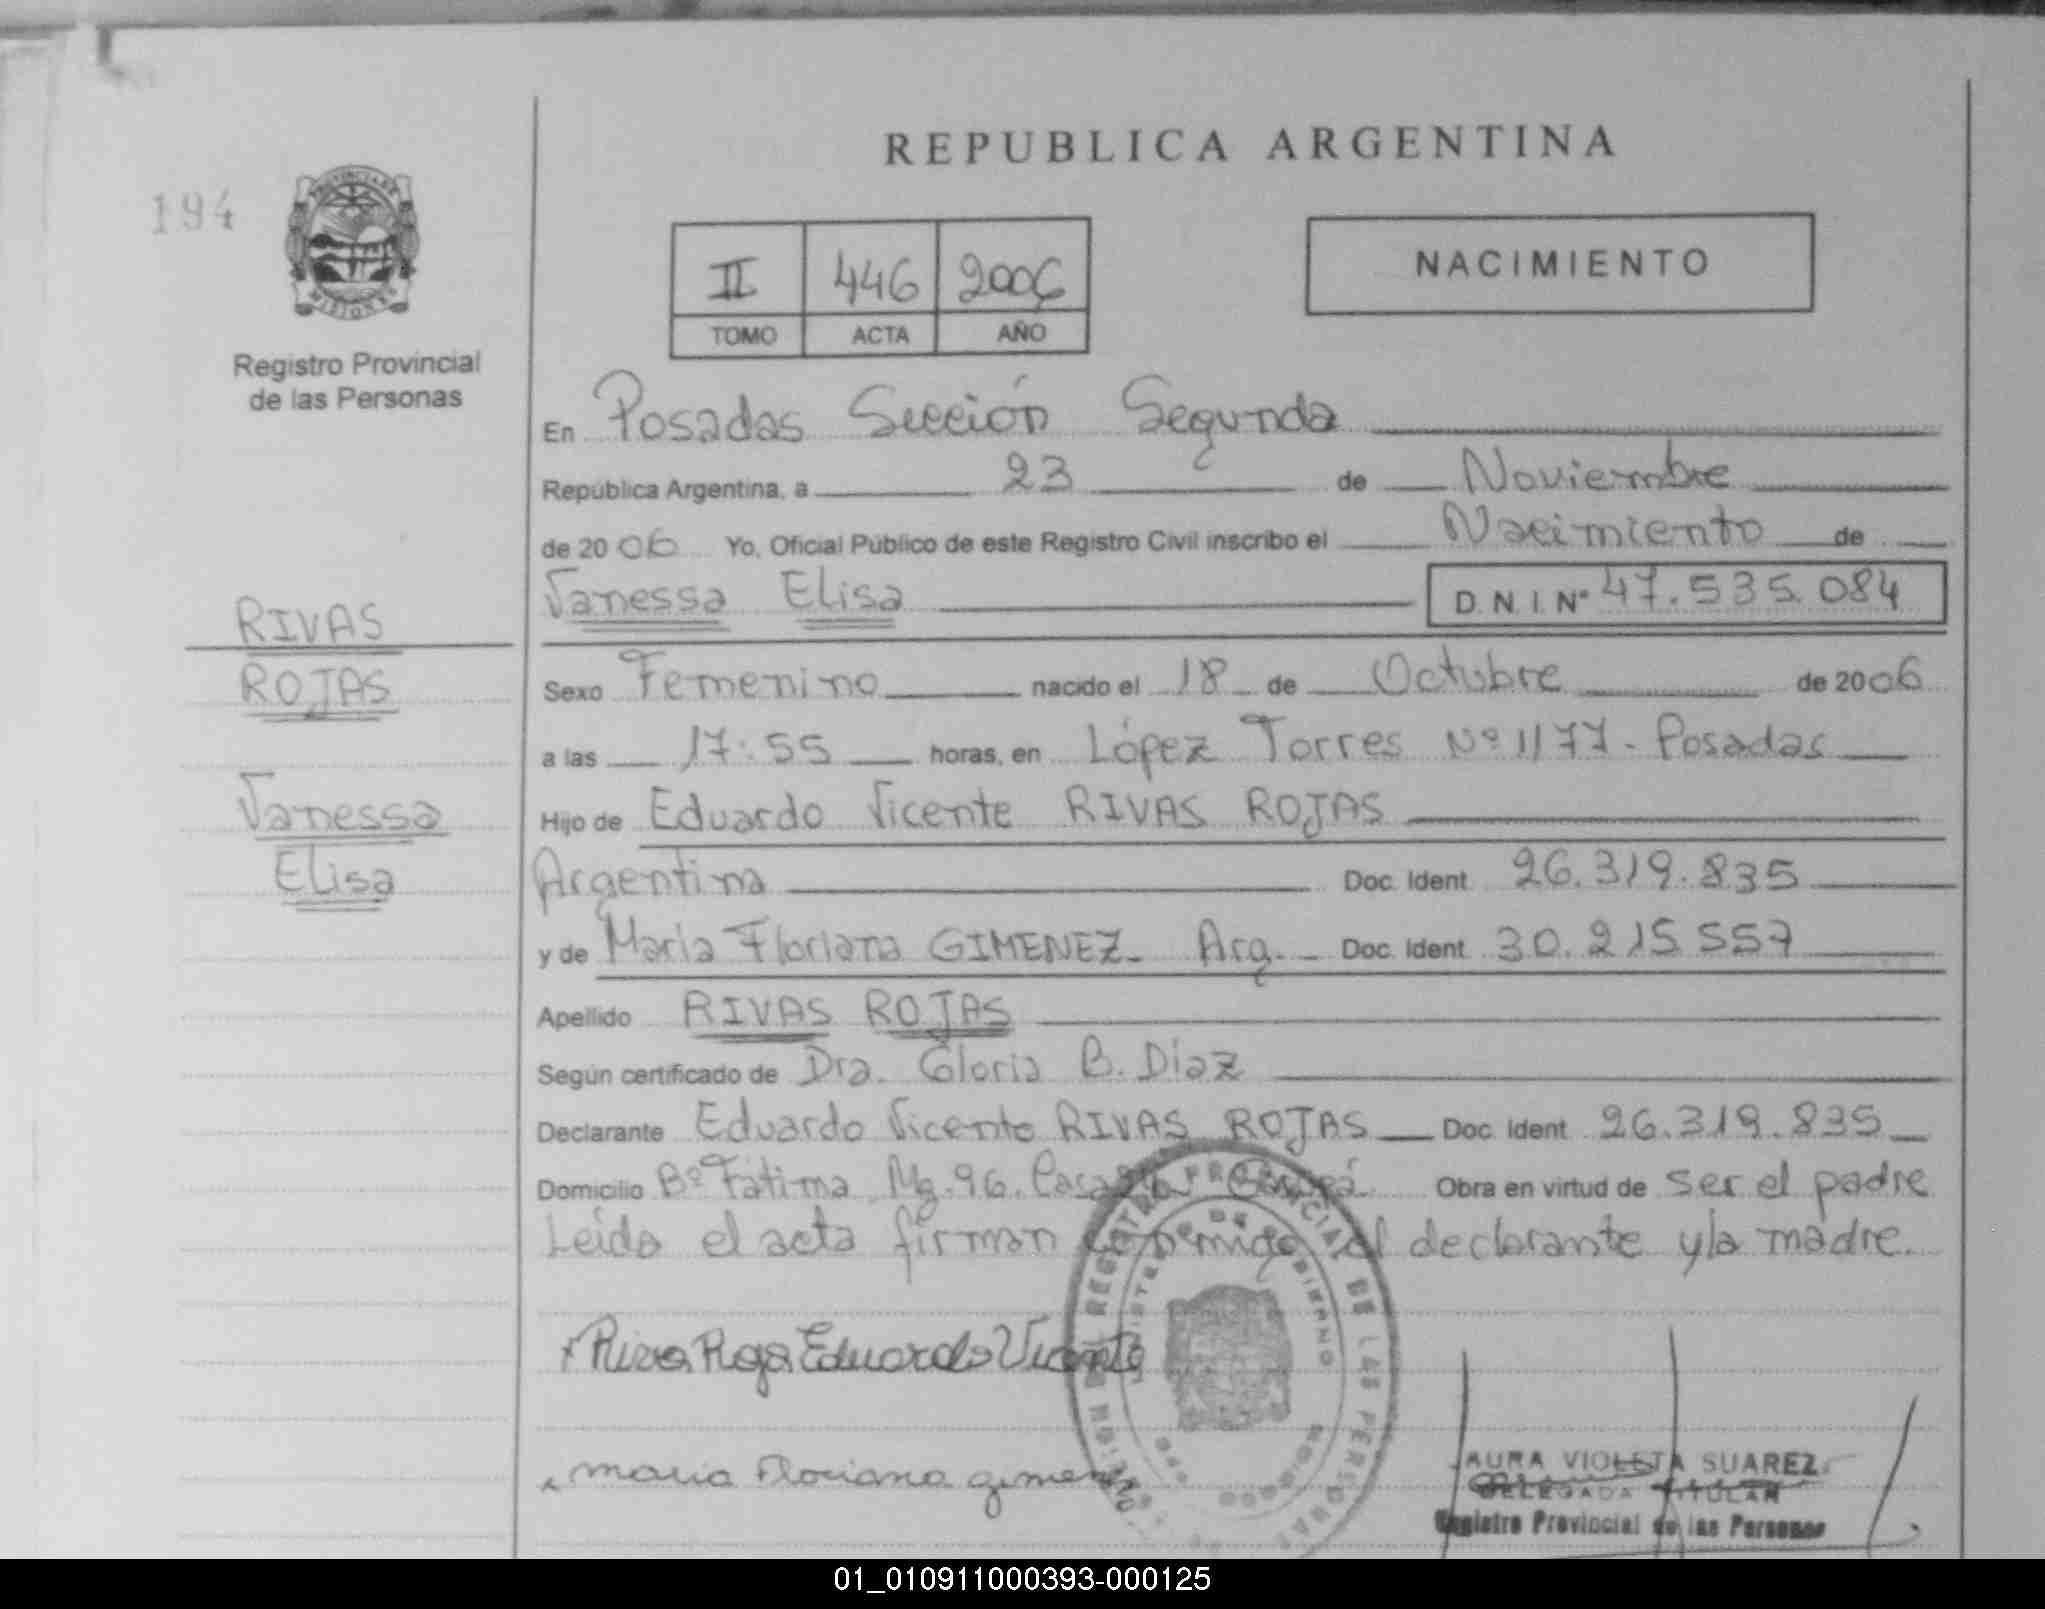 REPUBLICA ARGENTINA
194
PROVINCIA DE
MISIONES
Registro Provincial
de las Personas
II 446 2006
TOMO ACTA AÑO
NACIMIENTO
En Posadas Sección Segunda
República Argentina, a 23 de Noviembre
de 2006 Yo, Oficial Público de este Registro Civil inscribo el Nacimiento de
Vanessa Elisa D.N.I. Nº 47.535.084
RIVAS
ROJAS
Vanessa
Elisa
Sexo Femenino nacido el 18 de Octubre de 2006
a las 17:55 horas, en López Torres Nº 1177 - Posadas
Hijo de Eduardo Vicente RIVAS ROJAS
Argentina Doc. Ident. 26.319.835
y de Maria Floriana GIMENEZ - Arg. - Doc. Ident. 30.215.557
Apellido RIVAS ROJAS
Según certificado de Dra. Gloria B. Diaz
Declarante Eduardo Vicente RIVAS ROJAS Doc. Ident. 26.319.835
Domicilio Bº Fátima Mz. 96. Casa Obra en virtud de ser el padre
Leída el acta firman conmigo el declarante y la madre.
Rivas Rojas Eduardo Vicente
maria Floriana gimenez
REGISTRO PROVINCIAL DE LAS PERSONAS
MINISTERIO DE GOBIERNO
AURA VIOLETA SUAREZ
DELEGADA TITULAR
Registro Provincial de las Personas
01_010911000393-000125